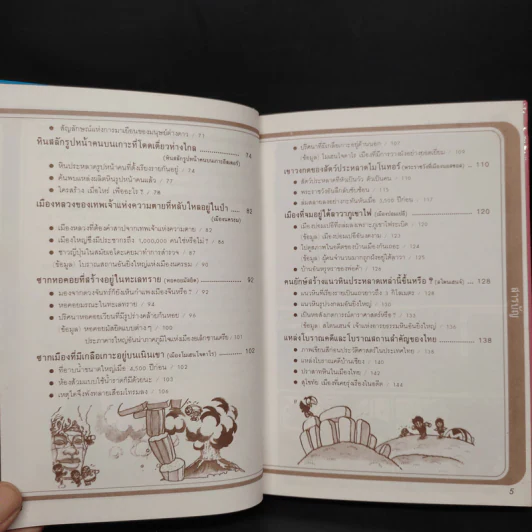 สัญลักษณ์แห่งการมาเยือนของมนุษย์ต่างดาว / 71
หินสลักรูปหน้าคนบนเกาะที่โดดเดี่ยวห่างไกล ..... 74
(หินสลักรูปหน้าคนบนเกาะอีสเตอร์)
หินประหลาดรูปหน้าคนที่ตั้งเรียงรายกันอยู่ / 74
ค้นพบแหล่งผลิตหินรูปหน้าคนแล้ว / 77
ใครสร้าง เมื่อไหร่ เพื่ออะไร? / 78
เมืองหลวงของเทพเจ้าแห่งความตายที่หลับใหลอยู่ในป่า ..... 82
(เมืองนครธม)
เมืองหลวงที่ต้องคำสาปจากเทพเจ้าแห่งความตาย / 82
เมืองใหญ่ซึ่งมีประชากรถึง 1,000,000 คนใช่หรือไม่? / 86
ชาวญี่ปุ่นในสมัยเอโดะเคยมาทำการสำรวจ / 87
(ข้อมูล) โบราณสถานอันยิ่งใหญ่แห่งเมืองนครธม / 90
ซากหอคอยที่สร้างอยู่ในทะเลทราย (หอคอยมัสยิด) ..... 92
มองจากดวงจันทร์ก็ยังเห็นกำแพงเมืองจีนเหรอ? / 92
หอคอยมรณะในทะเลทราย / 94
ปริศนาหอคอยเวียนที่มีรูปร่างคล้ายก้นหอย / 94
(ข้อมูล) หอคอยมัสยิดแบบต่างๆ / 100
ประภาคารใหญ่อันน่าภาคภูมิใจแห่งเมืองอเล็กซานเดรีย / 101
ซากเมืองที่มีเกลือเกาะอยู่บนเนินเขา (เมืองโมเฮนโจดาโร) ..... 102
ที่อาบน้ำขนาดใหญ่เมื่อ 4,500 ปีก่อน / 102
ห้องส้วมแบบใช้น้ำราดก็มีด้วยนะ / 103
เหตุใดจึงพังทลายเสียมโทรมลง / 104
ปริศนาที่มีเกลือเกาะอยู่ด้านนอก / 107
(ข้อมูล) โมเฮนโจดาโร เมืองที่มีการวางผังอย่างยอดเยี่ยม / 109
เขาวงกตของสัตว์ประหลาดไมโนทอร์ ..... 110
สัตว์ประหลาดที่หัวเป็นวัว ตัวเป็นคน / 110
พระราชวังอันลึกลับซับซ้อน / 113
ล่มสลายลงอย่างกะทันหันเมื่อ 3,500 ปีก่อน / 117
เมืองที่จมอยู่ใต้ลาวาภูเขาไฟ (เมืองปอมเปอี) ..... 120
เมืองปอมเปอีที่ถล่มลงเพราะภูเขาไฟระเบิด / 120
(ข้อมูล) เมืองปอมเปอีอันงดงาม / 123
ไปดูสภาพในอดีตของบ้านเมืองกันเถอะ / 124
บ้านอันหรูหราของพ่อค้า / 126
คนยักษ์สร้างแนวหินประหลาดเหล่านี้ขึ้นหรือ ? (สโตนเฮนจ์) ..... 128
แนวหินรูปวงกลมอันยิ่งใหญ่ / 131
เป็นหอสังเกตการณ์ดาราศาสตร์หรือ? / 132
แหล่งโบราณคดีและโบราณสถานสำคัญของไทย ..... 138
ภาพเขียนสีก่อนประวัติศาสตร์ในประเทศไทย / 138
แหล่งโบราณคดีบ้านเชียง / 140
ปราสาทหินในเมืองไทย / 142
สุโขทัย เมืองที่เคยรุ่งเรืองในอดีต / 144
สารบัญ
5